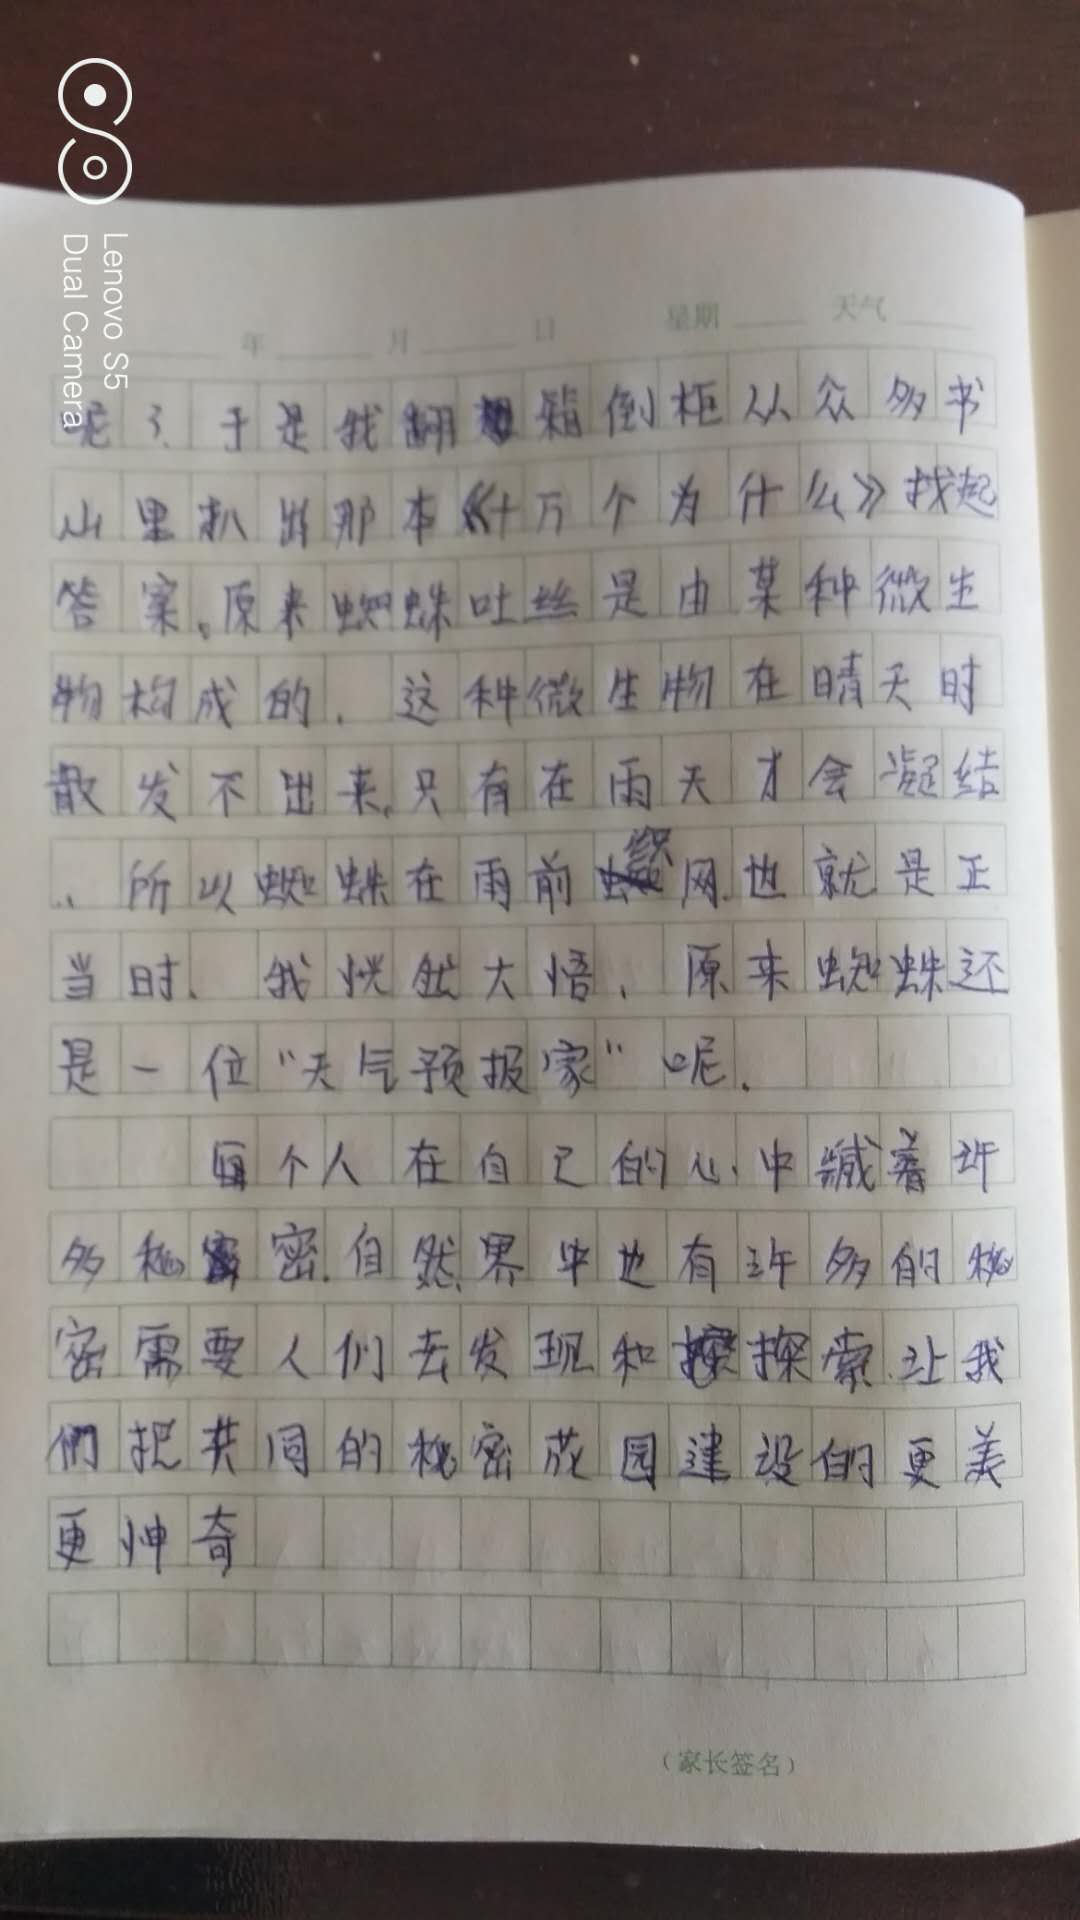 Lenovo S5
Dual Camera
年 月 日 星期 天气
呢？于是我翻箱倒柜从众多书
山里扒出那本《十万个为什么》找起
答案。原来蜘蛛吐丝是由某种微生
物构成的．这种微生物在晴天时
散发不出来，只有在雨天才会凝结
．所以蜘蛛在雨前织网．也就是正
当时．我恍然大悟．原来蜘蛛还
是一位“天气预报家”呢．
每个人在自己的心中藏着许
多秘密．自然界中也有许多的秘
密需要人们去发现和探索．让我
们把共同的秘密花园建设的更美
更神奇
（家长签名）